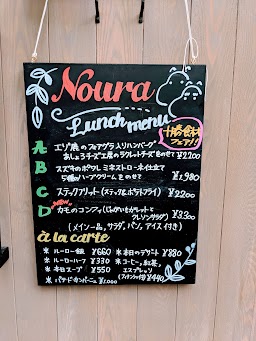 Noura
Lunch menu
十勝食材
フェア!!
A エゾ鹿のフォアグラ入りハンバーグ
あしょろチーズ工房のラクレットチーズをのせて ¥2200
B スズキのポワレ ミネストローネ仕立て
5種のハーブクリームをのせて ¥1,980
C ステックフリット(ステーキ&ポテトフライ) ¥2200
D カモのコンフィ(じゃがいもガレットと
クレソンサラダ) ¥3300
(メイン一品、サラダ、パン、アイス付き)
à la carte
* ルーロー飯 ¥660
* ルーローハーフ ¥330
* 本日スープ ¥550
* パテドカンパーニュ ¥1,000
* 本日のデザート ¥880
* コーヒー、紅茶、
エスプレッソ
¥440